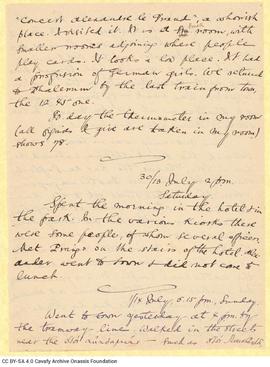 "Concert Alexandre le Grand", a whorish
place. I visited it. It is a room, with
smaller rooms adjoining where people
play cards. It looks a low place. It had
a profusion of German girls. We returned
to Phalerum by the last train from town,
the 12.45 one.
To day the thermometer in my room
(all signals I give are taken in my room)
shows 78.
30/13 July 2 p.m.
Saturday
Spent the morning in the hotel & in
the park. In the various kiosks there
were some people, of whom several officers.
Met on the stairs of the hotel.
went to town & did not care to
lunch.
1/14 July, 6.15 p.m. Sunday.
Went to town yesterday at 4 p.m. by
the tramway lines. Walked in the streets
near the such as
CC BY-SA 4.0 Cavafy Archive Onassis Foundation